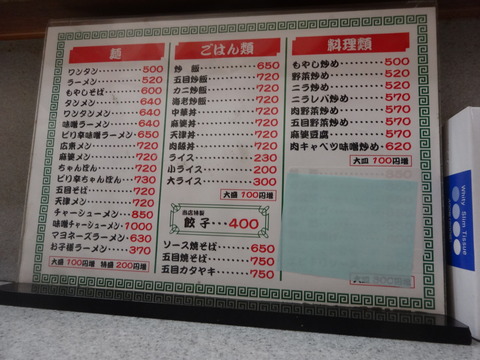 麺
ワンタン 500
ラーメン 520
もやしそば 600
タンメン 640
ワンタンメン 640
味噌ラーメン 640
ピリ辛味噌ラーメン 650
広東メン 720
麻婆メン 720
ちゃんぽん 720
ピリ辛ちゃんぽん 730
五目そば 720
天津メン 720
チャーシューメン 850
味噌チャーシューメン 1000
マヨネーズラーメン 630
お子様ラーメン 370
大盛 100円増 特盛 200円増
ごはん類
炒飯 650
五目炒飯 720
カニ炒飯 720
海老炒飯 720
中華丼 720
麻婆丼 720
天津丼 720
肉飯丼 720
ライス 230
小ライス 200
大ライス 300
大盛 100円増
当店特製
餃子 400
ソース焼そば 650
五目焼そば 750
五目カタヤキ 750
料理類
もやし炒め 500
野菜炒め 520
ニラ炒め 520
ニラレバ炒め 570
肉野菜炒め 570
五目野菜炒め 570
麻婆豆腐 570
肉キャベツ味噌炒め 620
大皿 100円増
Whity Slim Tissue